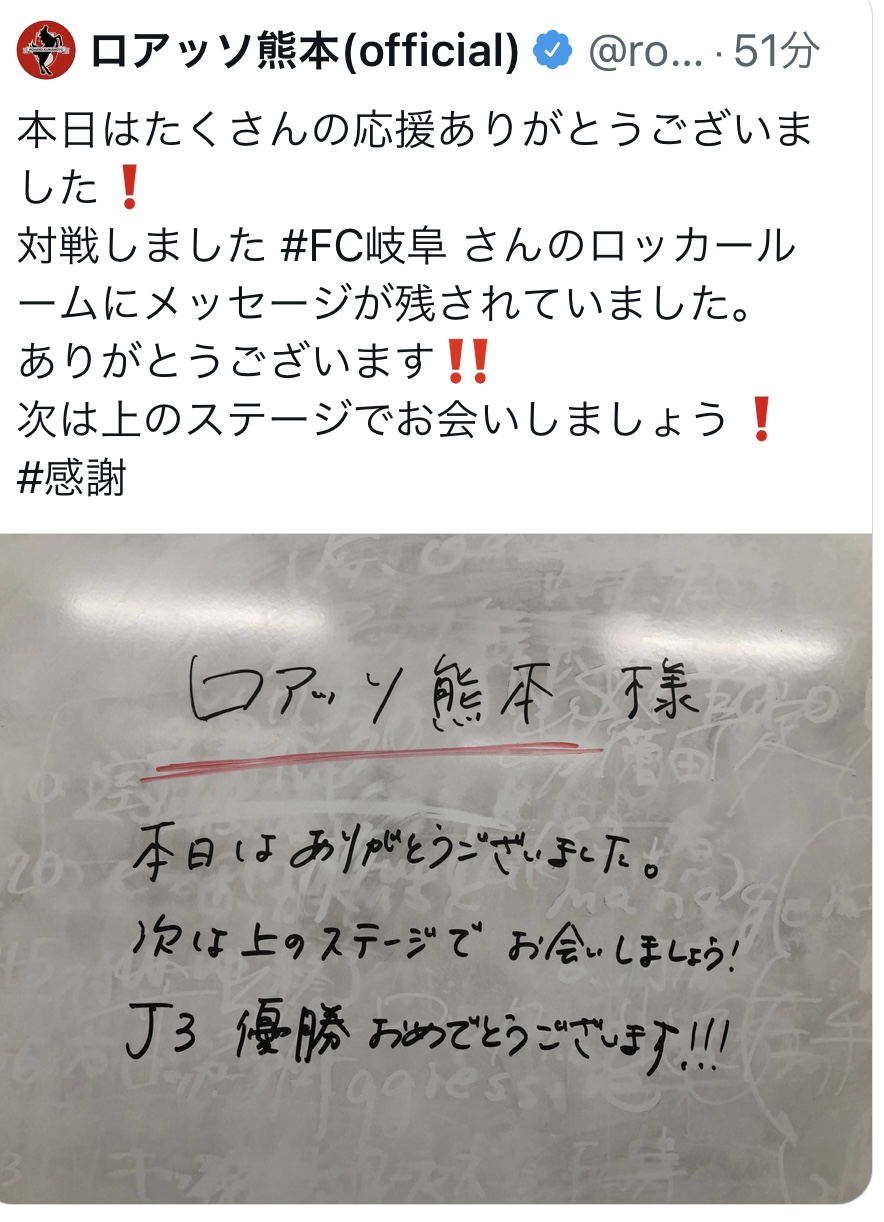 ロアッソ熊本(official) @ro... · 51分
本日はたくさんの応援ありがとうございま
した❗
対戦しました #FC岐阜 さんのロッカール
ームにメッセージが残されていました。
ありがとうございます‼️
次は上のステージでお会いしましょう❗
#感謝
ロアッソ熊本 様
本日はありがとうございました。
次は上のステージで お会いしましょう!
J3 優勝 おめでとうございます!!!